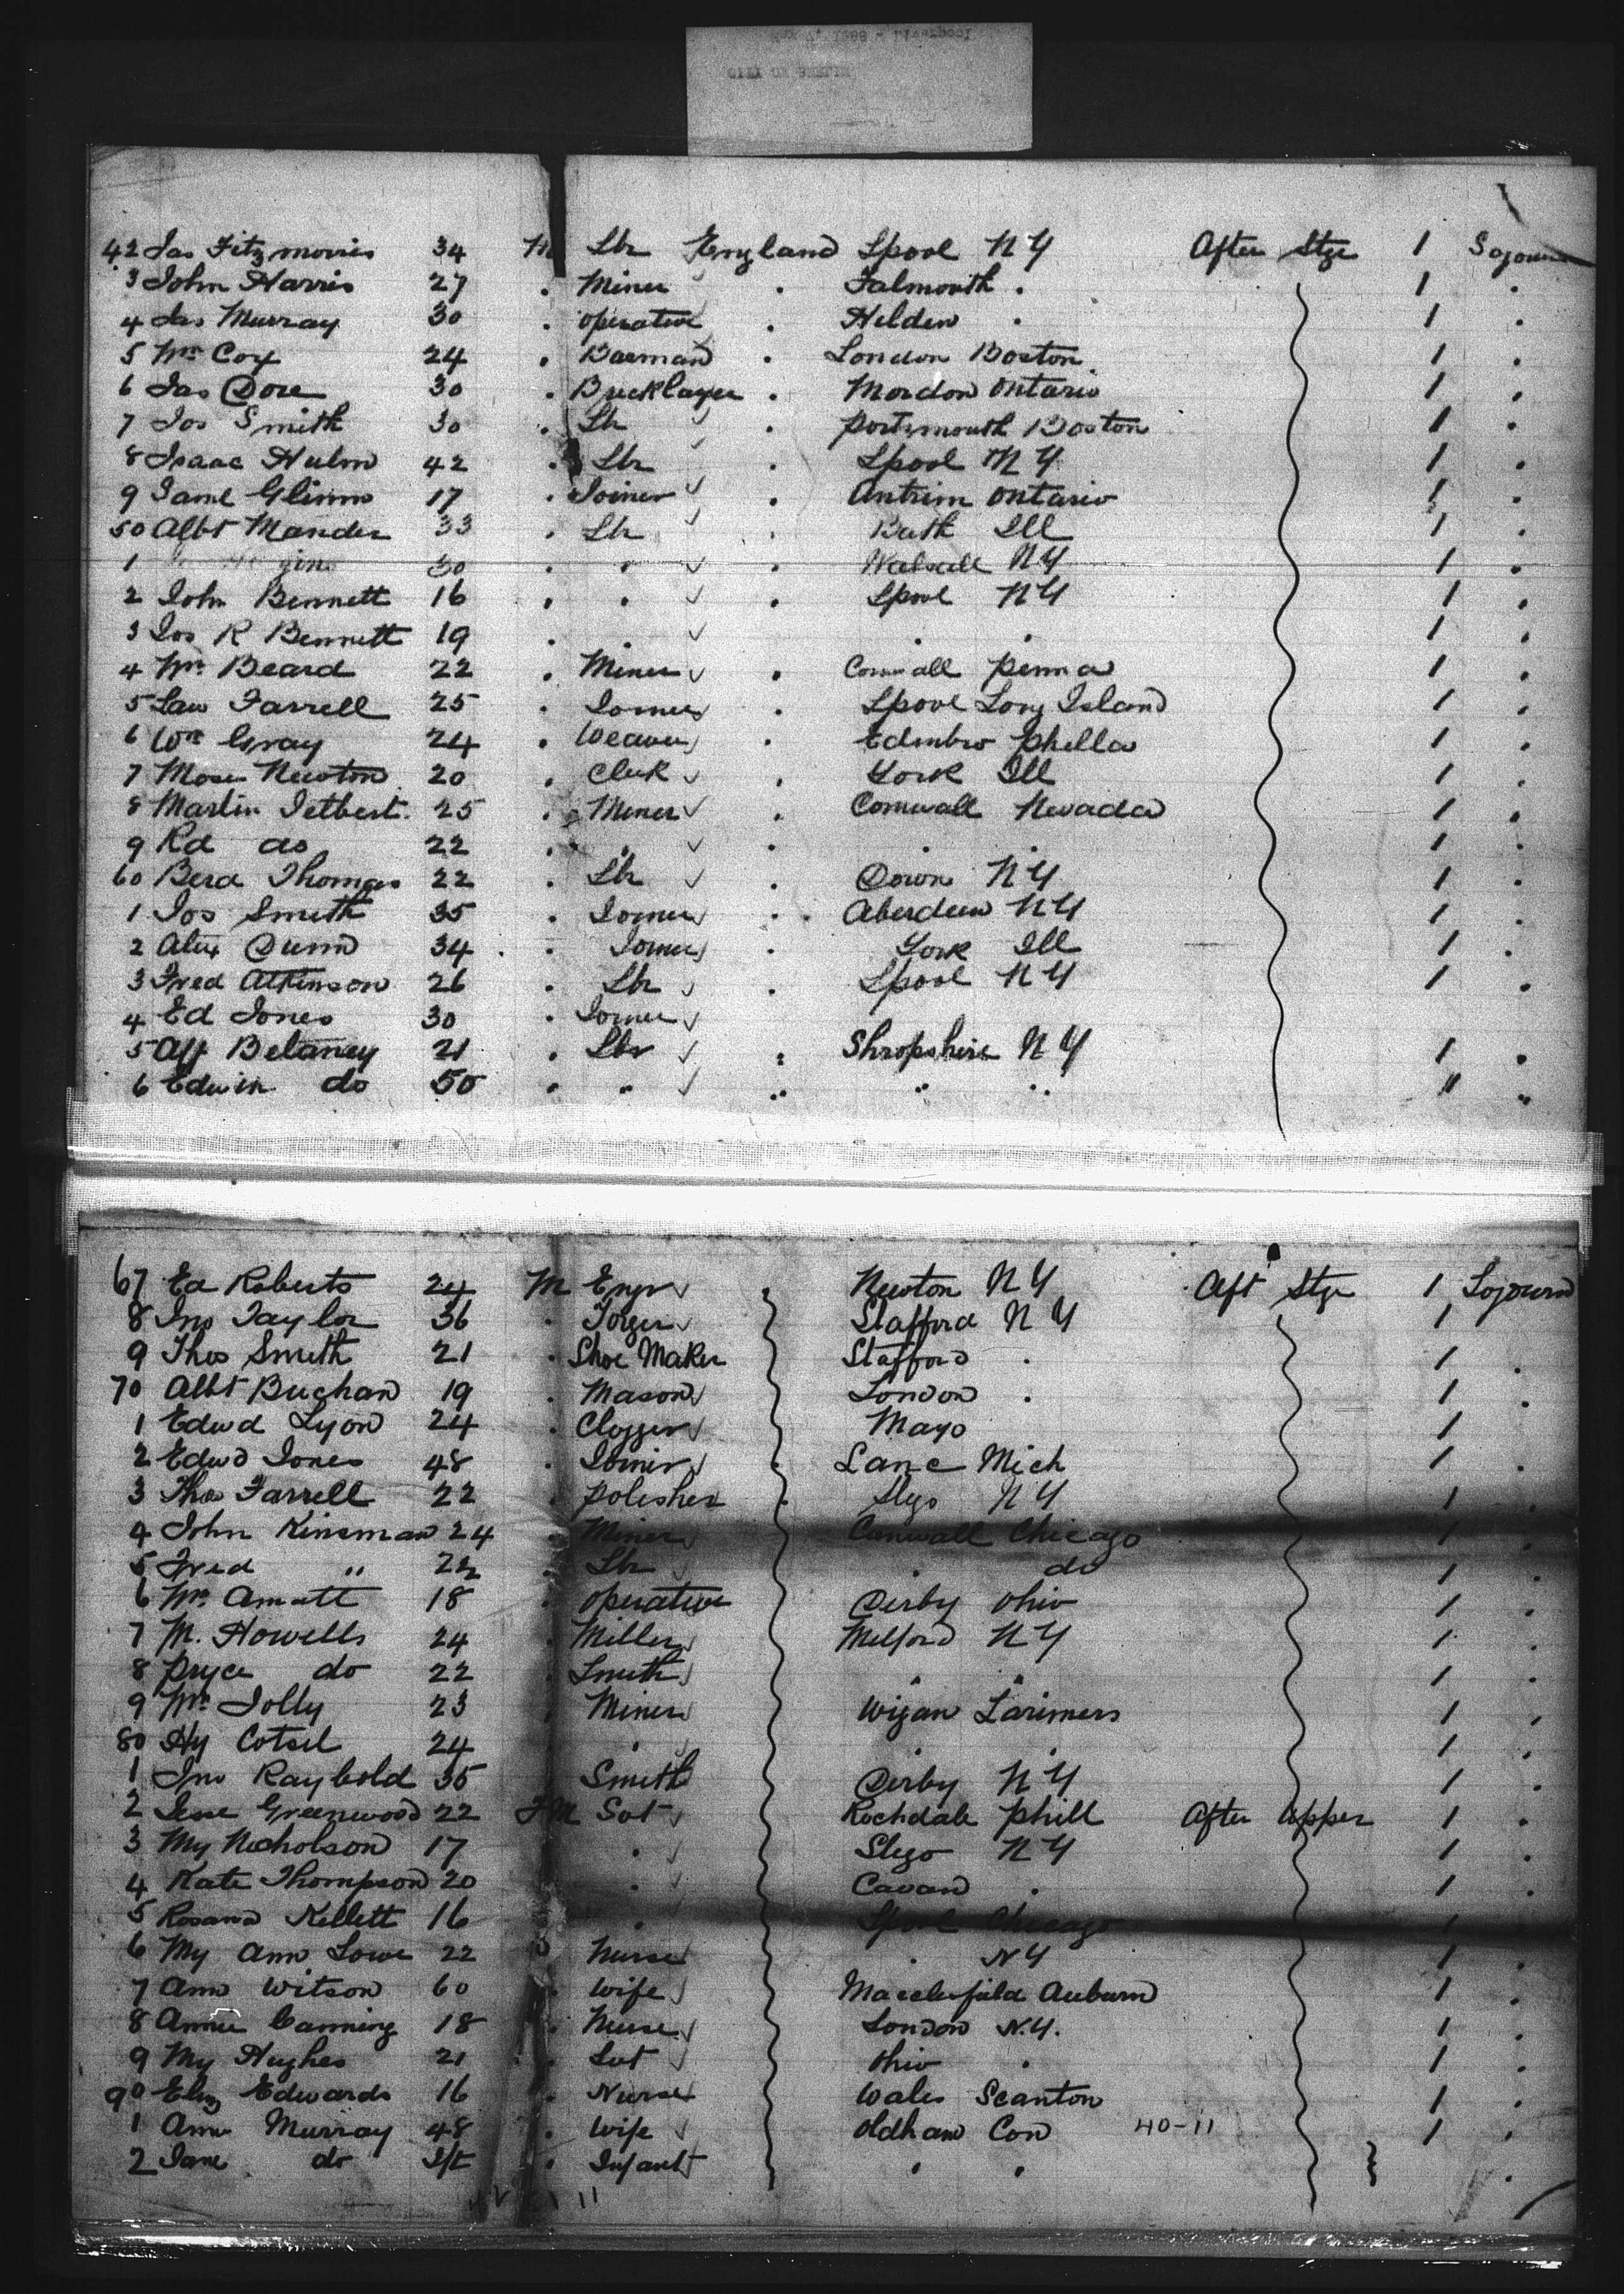 CITY OF BERLIN
42 Jas Fitzmorris 34 M Lbr England Lpool N Y After Stge 1 Sojourn
3 John Harris 27 . Miner . Falmouth . 1 .
4 Jas Murray 30 . operative . Helden . 1 .
5 Wm Coy 24 . Barman . London Boston 1 .
6 Jas Dore 30 . Bricklayer . Mordon Ontario 1 .
7 Jos Smith 30 . Lbr . portsmouth Boston 1 .
8 Isaac Hulm 42 . Lbr . Lpool N Y 1 .
9 Jame Glinn 17 . Joiner . Antrim Ontario 1 .
50 Albt Mander 33 . Lbr . Bath Ill 1 .
1 30 . . . Walsall N Y 1 .
2 John Bennett 16 . . . Lpool N Y 1 .
3 Jos R Bennett 19 . . . . 1 .
4 Wm Beard 22 . Miner . Cornwall penna 1 .
5 Law Farrell 25 . Joiner . Lpool Long Island 1 .
6 Wm Gray 24 . Weaver . Edinbro phella 1 .
7 Mose Newton 20 . Clerk . York Ill 1 .
8 Martin Jetbert 25 . Miner . Cornwall Nevada 1 .
9 Rd do 22 . . . . . 1 .
60 Berd Thomas 22 . Lbr . Down N Y 1 .
1 Jos Smith 35 . Joiner . Aberdeen N Y 1 .
2 Alex Dunn 34 . Joiner . York Ill 1 .
3 Fred Atkinson 26 . Lbr . Lpool N Y 1 .
4 Ed Jones 30 . Joiner
5 Alf Belaney 21 . Lbr . Shropshire N Y 1 .
6 Edwin do 50 . " .. " .. " ..
67 Ed Roberts 24 M Engr . Newton N Y Aft Stge 1 Sojourn
8 Jno Taylor 36 . Forger Stafford N Y 1 .
9 Thos Smith 21 . Shoe Maker Stafford . 1 .
70 Albt Buchan 19 . Mason London . 1 .
1 Edwd Lyon 24 . Clogger Mayo 1
2 Edwd Jones 48 . Joiner Lanc Mich 1 .
3 Thos Farrell 22 . polisher Sligo N Y 1 .
4 John Kinsman 24 . Miner Cornwall Chicago 1 .
5 Fred " 22 . Lbr . do 1 .
6 Wm Amatt 18 . operative Derby Ohio 1 .
7 M. Howells 24 . Miller Melford N Y 1 .
8 pryce do 22 . Smith . . 1 .
9 Wm Jolly 23 . Miner Wigan Larimers 1 .
80 Hy Cotsel 24 . . . 1 .
1 Jno Raybold 35 Smith Derby N Y 1 .
2 Jesse Greenwood 22 F M Svt Rochdale phill After Upper 1 .
3 My Nicholson 17 . Sligo N Y 1 .
4 Kate Thompson 20 . Cavan . 1 .
5 Rosanna Kellett 16 . Lpool Chicago 1 .
6 My Ann Lowe 22 . Nurse . N Y 1 .
7 Ann Witson 60 . Wife Macclesfield Auburn 1 .
8 Annie Canning 18 . Nurse London N.Y. 1 .
9 My Hughes 21 . Svt Ohio . 1 .
90 Eliz Edwards 16 . Nurse Wales Scanton 1 .
1 Ann Murray 48 . Wife Oldham Con 40-11 1 .
2 Jane do Ift . Infant . . .